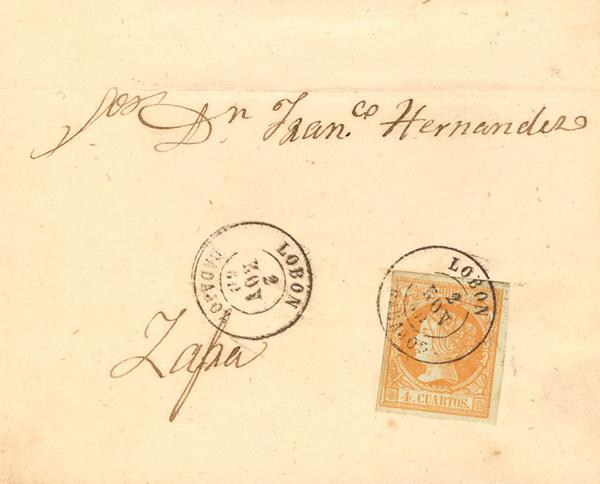 Sor Dn Franco. Hernandez
LOBON
2
NOV
60
BADAJOZ
LOBON
2
NOV
4 CUARTOS.
Zafra